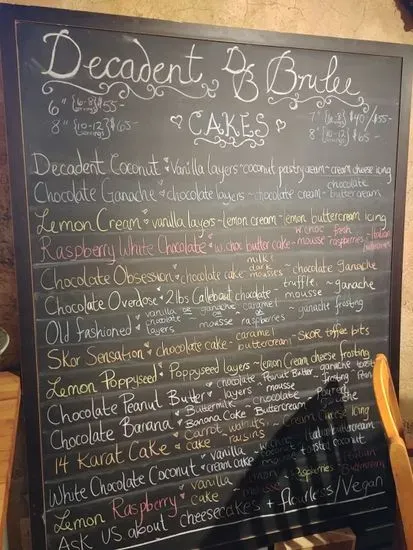 Decadent DB Brulee
6" {6-8 servings} $55-
8" {10-12 servings} $65-
CAKES
7" $40/$55-
8" {10-12} $65-
Decadent Coconut vanilla layers ~ coconut pastry cream ~ cream cheese icing
Chocolate Ganache chocolate layers ~ chocolate cream ~ chocolate buttercream
Lemon Cream vanilla layers ~ lemon cream ~ lemon buttercream icing
Raspberry White Chocolate w. choc butter cake ~ w. choc mousse fresh raspberries ~ Italian buttercream
Chocolate Obsession chocolate cake ~ milk & dark mousse ~ chocolate ganache
Chocolate Overdose 2 lbs Callebaut chocolate ~ truffle mousse ~ ganache
Old Fashioned vanilla or chocolate layers ~ ganache or mousse caramel or raspberries ~ ganache frosting
Skor Sensation chocolate cake ~ caramel buttercream ~ Skor toffee bits
Lemon Poppyseed Poppyseed layers ~ lemon cream cheese frosting
Chocolate Peanut Butter chocolate layers Peanut Butter mousse ganache frosting
Chocolate Banana Buttermilk Banana Cake chocolate Buttercream
14 Karat Cake Carrot cake walnuts raisins ~ Cream Cheese Icing
White Chocolate Coconut vanilla cream cake mousse toasted coconut Italian buttercream
Lemon Raspberry vanilla cake mousse Raspberries Italian Buttercream
Ask us about cheesecakes + flourless/Vegan